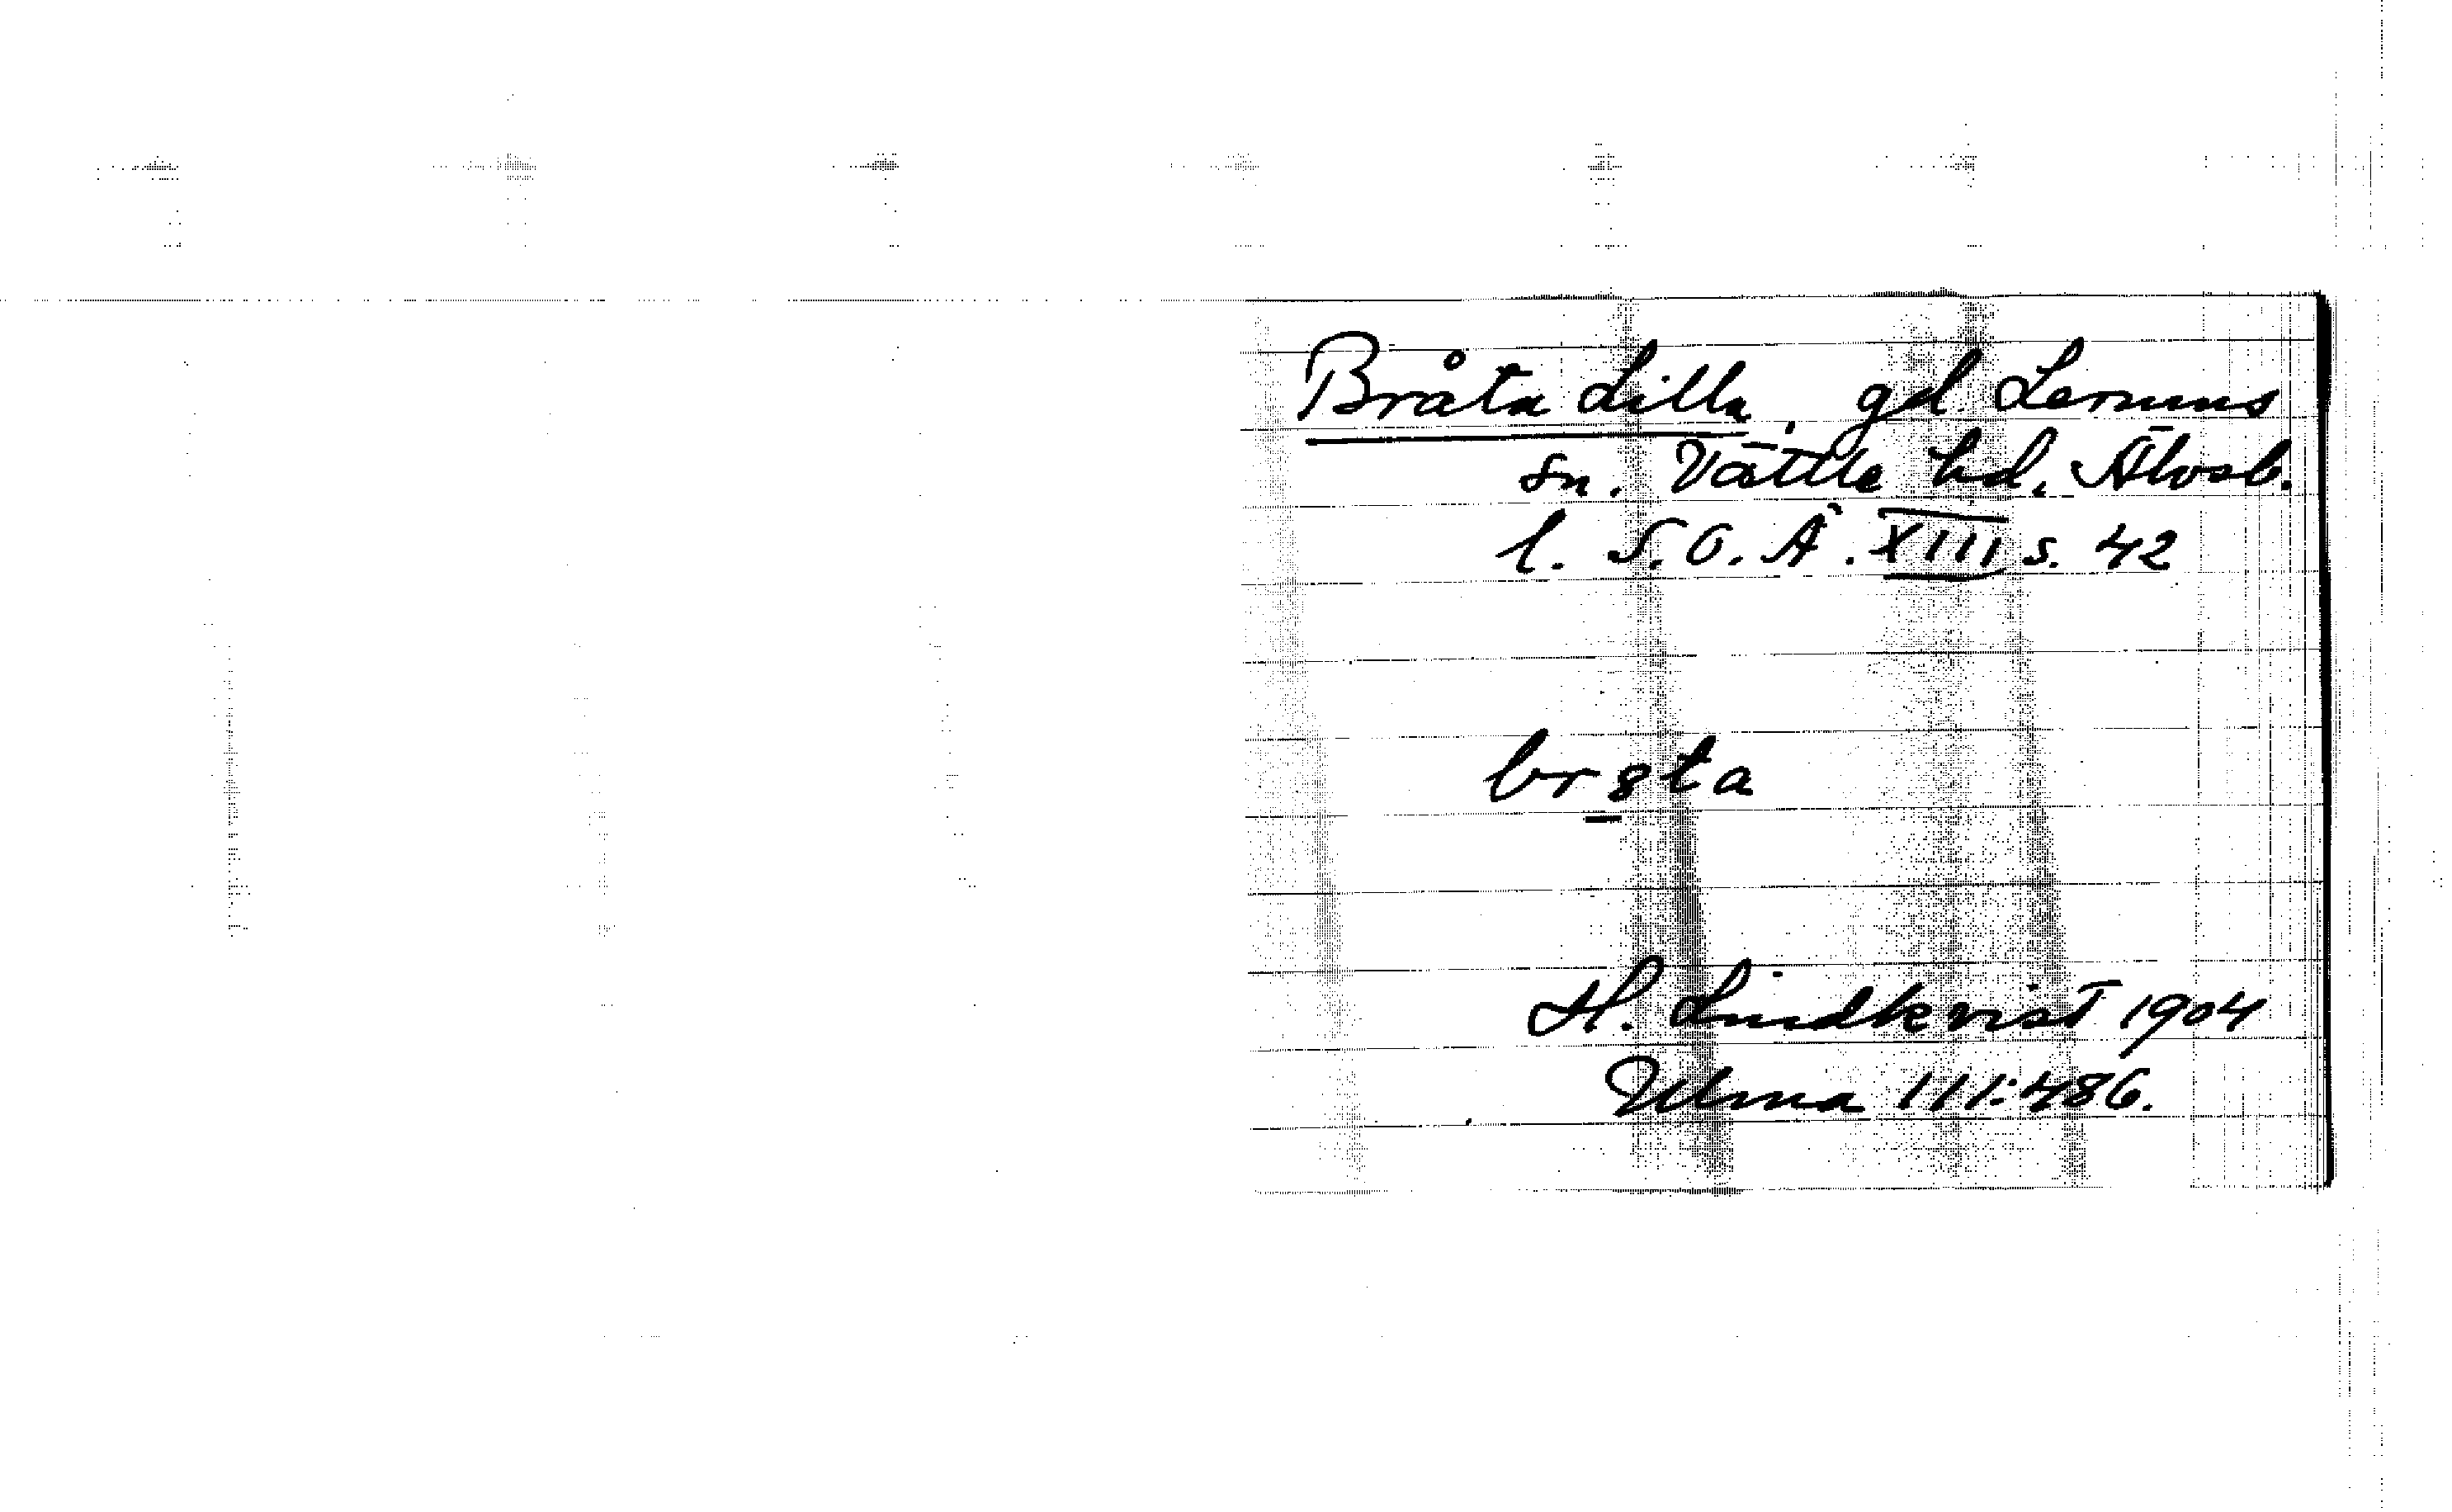 Bråta Lilla, gd. Lerums
sn. Vättle hd, Älvsb.
l. S.O.Ä. XIII s. 42
br8ta
H. Lindkvist 1904
Ulma 111:486.